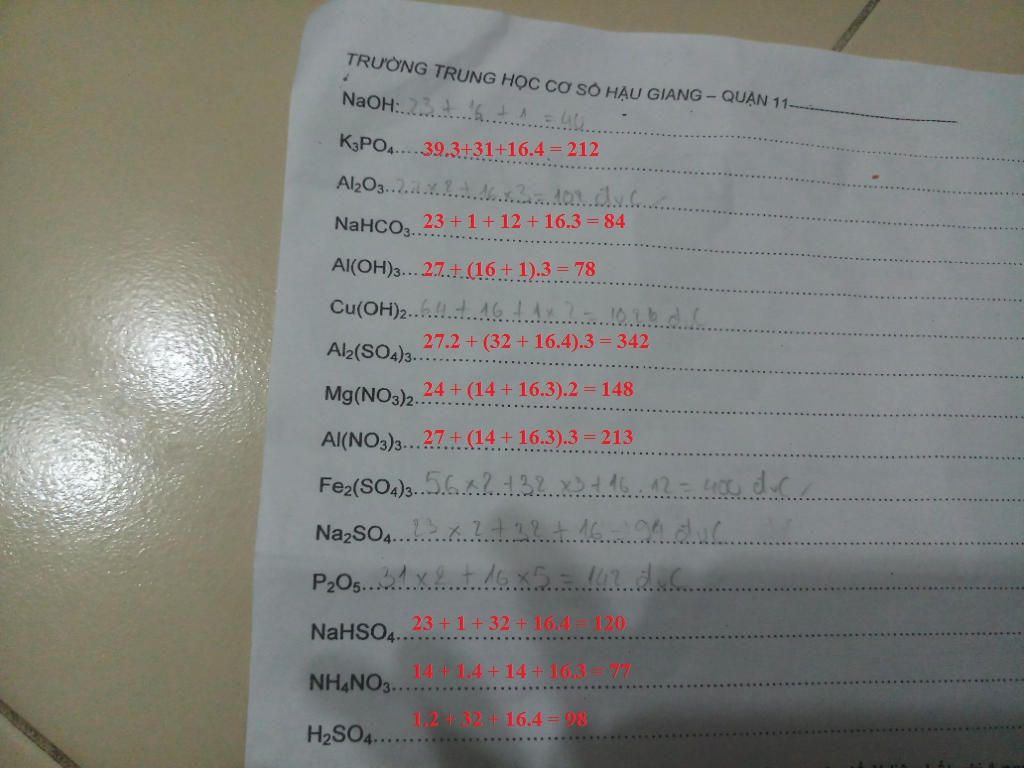 TRƯỜNG TRUNG HỌC CƠ SỞ HẬU GIANG – QUẬN 11
NaOH: 23 + 16 + 1 = 40
K₃PO₄ 39.3+31+16.4 = 212
Al₂O₃ 27×2+16×3=102 đvC
NaHCO₃ 23 + 1 + 12 + 16.3 = 84
Al(OH)₃ 27 + (16 + 1).3 = 78
Cu(OH)₂ 64 + 16 + 1 × 2 = đvC
Al₂(SO₄)₃ 27.2 + (32 + 16.4).3 = 342
Mg(NO₃)₂ 24 + (14 + 16.3).2 = 148
Al(NO₃)₃ 27 + (14 + 16.3).3 = 213
Fe₂(SO₄)₃ 56×2+32×3+16.12=400 đvC
Na₂SO₄ 23×2+32+16=94 đvC
P₂O₅ 31×2+16×5=142 đvC
NaHSO₄ 23 + 1 + 32 + 16.4 = 120
NH₄NO₃ 14 + 1.4 + 14 + 16.3 = 77
H₂SO₄ 1.2 + 32 + 16.4 = 98